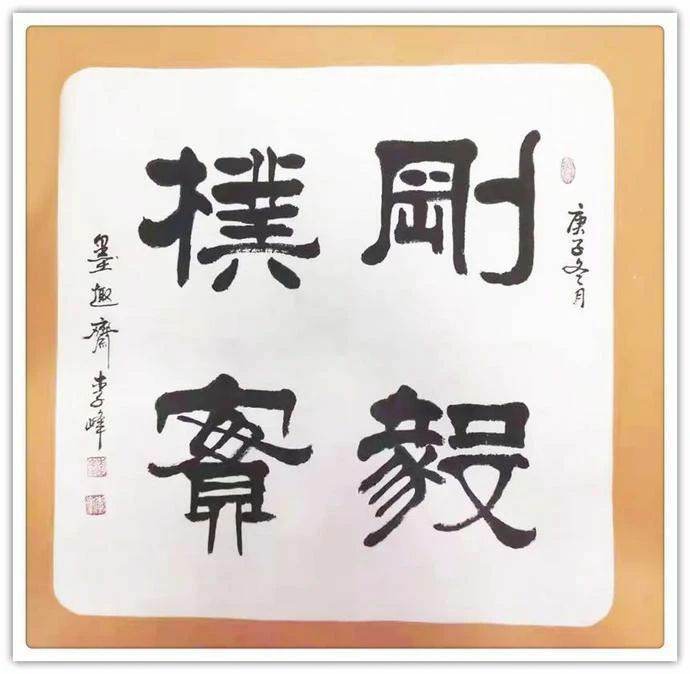 庚子冬月
剛毅
樸實
墨趣齋李峰